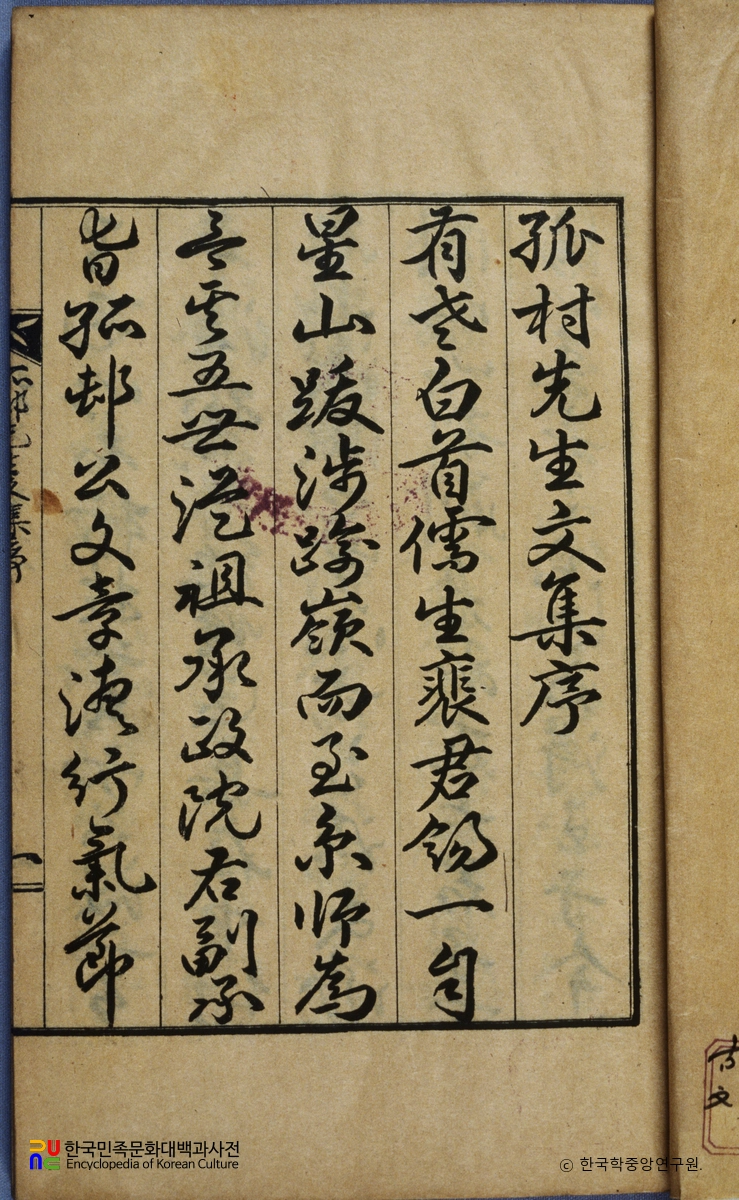 孤村先生文集序
有老白首儒生裵君錫一自
星山跋涉踰嶺而至京師爲
言其五世從祖承政院右副承
旨孤邨公文章德行氣節
邨先生文集序
一
한국민족문화대백과사전
Encyclopedia of Korean Culture
© 한국학중앙연구원.